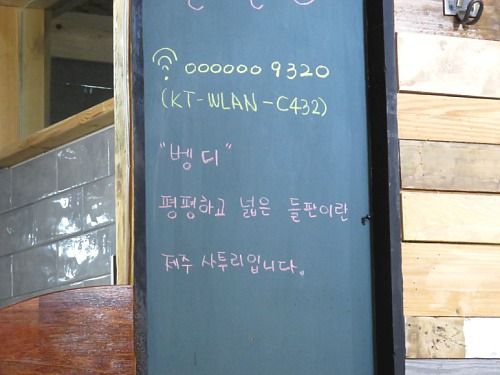 0000009320
(KT-WLAN-C432)
"벵디"
평평하고 넓은 들판이란
제주 사투리입니다.